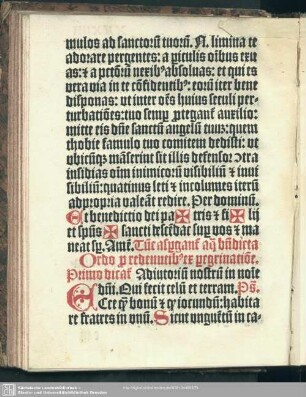 mulos ad sanctorū tuorū. N. limina te
adorare pergentes: a piculis oībus exu
as: ⁊ a pctōrū nexibꝰ absoluas: et qui es
vera via in te cōfidentibꝰ: eorū iter bene
disponas: ut inter oēs huius seculi per-
turbatiōes: tuo semp ptegant᷑ auxilio:
mitte eis dn̄e sanctū angelū tuū: quem
thobie famulo tuo comitem dedisti: ut
ubicūqꝫ māserint sit illis defensor: ꝯtra
insidias oīm inimicorū visibiliū ⁊ invi
sibiliū: quatinus leti ⁊ incolumes iterū
ad propria valeāt redire. Per dominū.
Et benedictio dei pa ✠ tris ⁊ fi ✠ lij
et spūs ✠ sancti descēdat sup vos ⁊ ma
neat sp. Amē. Tūc aspgant᷑ aq̄ bn̄dicta
Ordo p redeuntibꝰ ex pegrinatiōe.
Primo dicat᷑ Adiutoriū nostrū in noīe
dn̄i. Qui fecit celū et terram. Ps.
Ecce qꝫ bonū ⁊ qꝫ iocundū: habita
re fratres in unū. Sicut unguētū in ca-